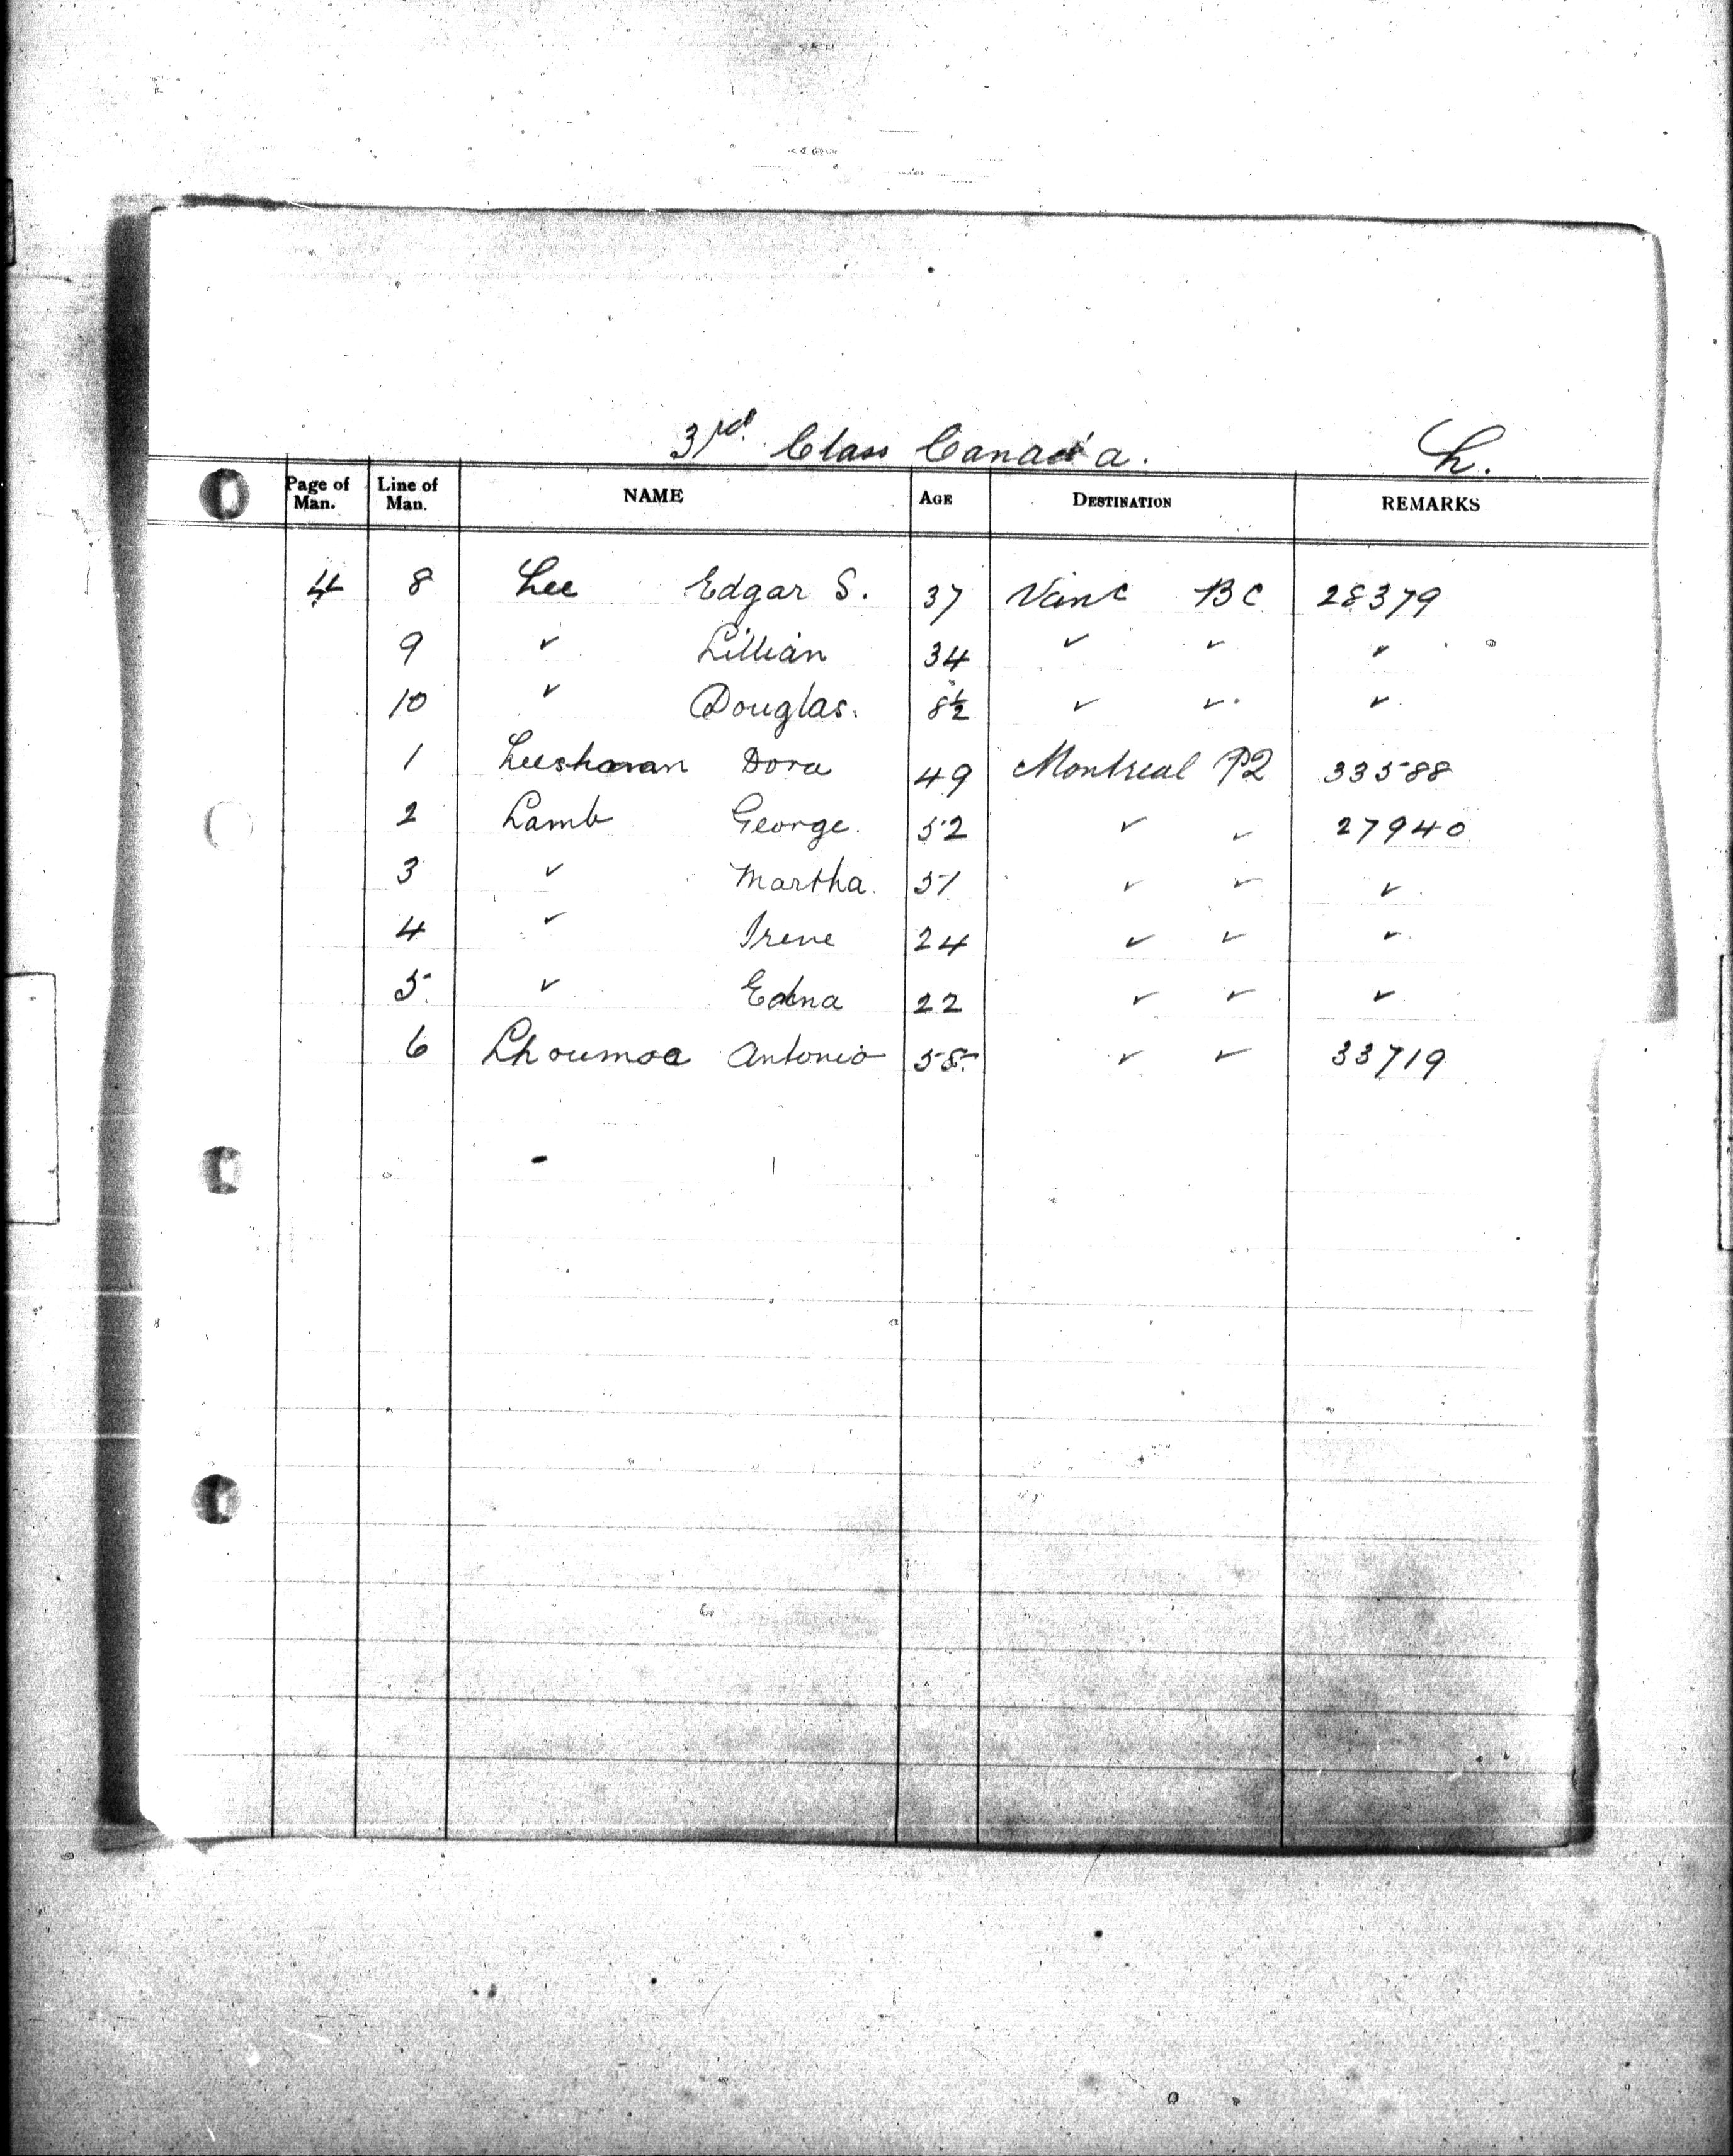 3rd. Class Canada. L.
Page of Man. Line of Man. NAME AGE DESTINATION REMARKS
4 8 Lee Edgar S. 37 Vanc BC 28379
9 " Lillian 34 " " "
10 " Douglas. 8½ " " "
1 Dora 49 Montreal PQ 33588
2 Lamb George. 52 " " 27940
3 " Martha. 51 " " "
4 " Irene 24 " " "
5. " Edna 22 " " "
6 Antonio 33719